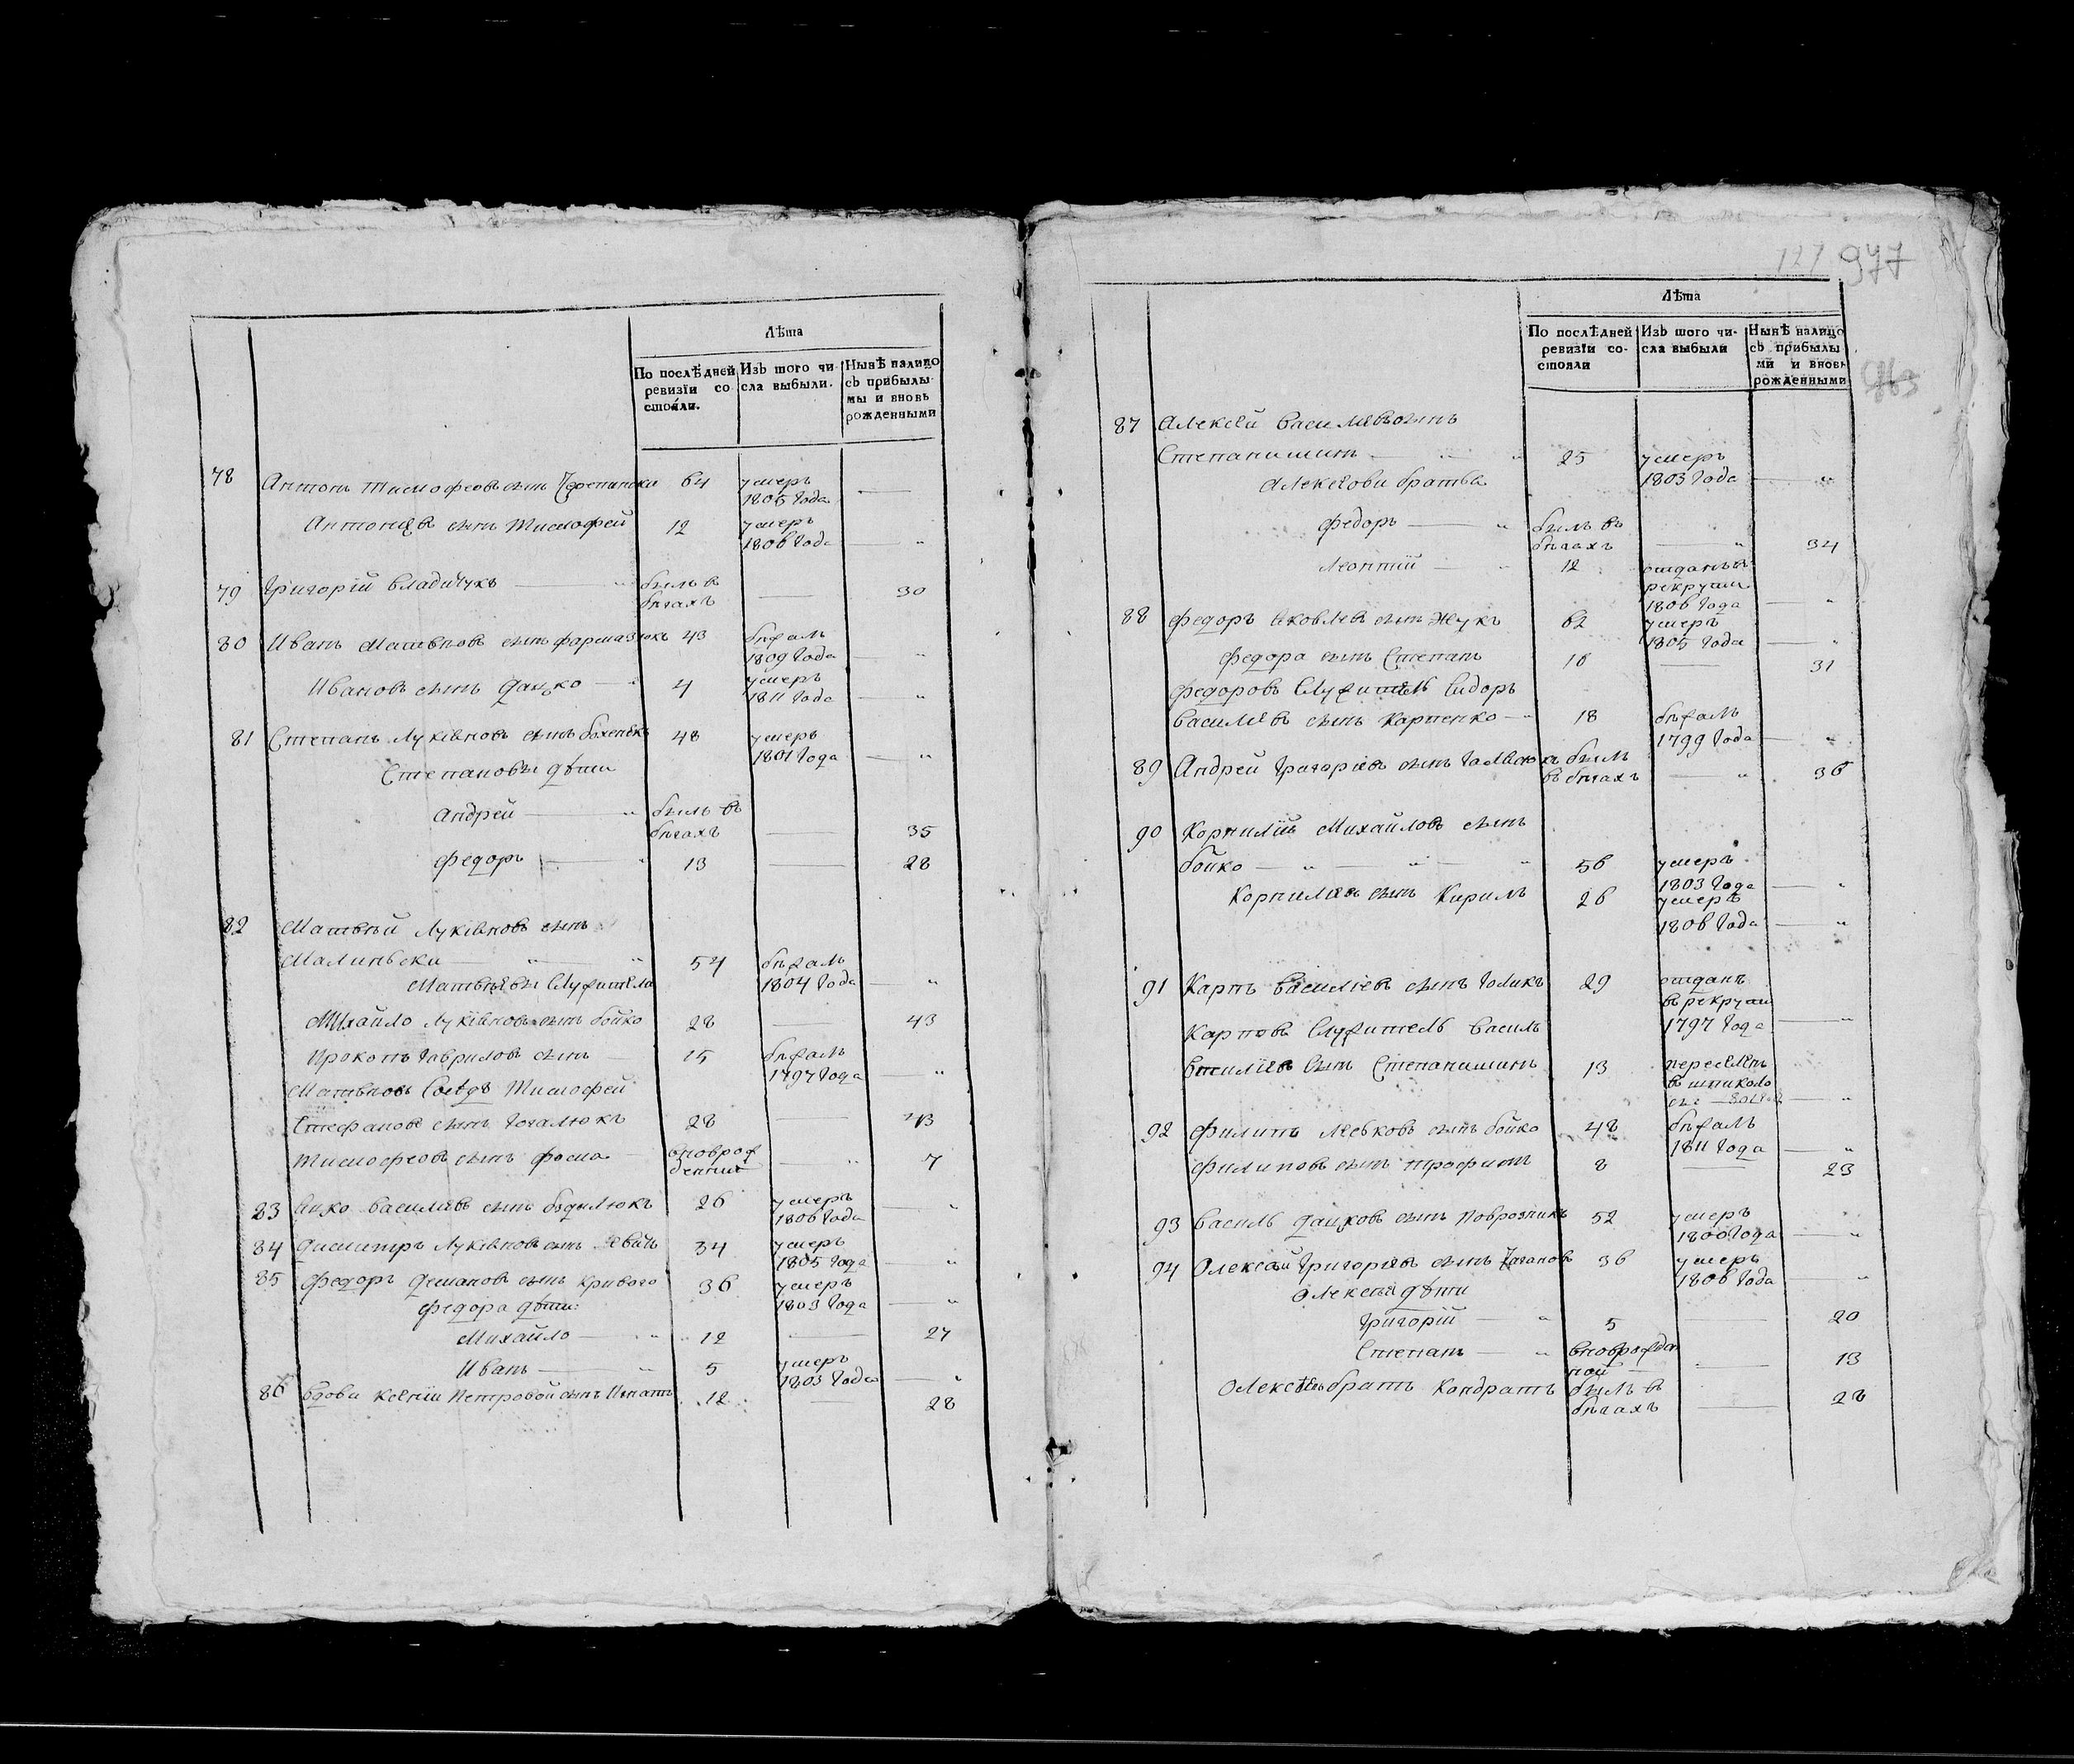 Лѣта
По послѣдней ревизїи со стояли.
Изъ того чи сла выбыли.
Нынѣ налицо съ прибылы мы и вновь рожденными
78 Антонъ Тимофеевъ сынъ 64 умеръ
1805 Года
Антонїевъ сынъ Тимофей 12 умеръ
1806 Года "
79 Григорїй Владичукъ " былъ в
бѣгахъ 30
80 Иванъ Матвѣювъ сынъ Фармазюкъ 43 бѣжалъ
1809 Года "
Ивановъ сынъ Дацко 4 умеръ
1811 Года "
81 Степанъ Лукїяновъ сынъ 48 умеръ
1801 Года "
Степановы дѣти
Андрей " былъ въ
бѣгахъ 35
Федоръ 13 28
82 Матвѣй Лукїяновъ сынъ
Малинъски " " 54 бѣжалъ
1804 Года "
Матвѣевы Служители
Михайло Лукїяновъ сынъ Бойко 28 43
Прокопъ Гаврилов сынъ 15 бѣжалъ
1797 Года "
Матвѣювъ Соседъ Тимофей
Стефановъ сынъ 28 43
Тимофеевъ сынъ Фома вноврож
денные " 7
83 Яцко Василїевъ сынъ 26 умеръ
1806 Года "
84 Димитръ Лукїяновъ сынъ 34 умеръ
1805 Года "
85 Федоръ Демяновъ сынъ Кривого 36 умеръ
1803 Года "
Федора дѣти:
Михайло " 12 27
Иванъ " 5 умеръ
1803 Года "
86 Вдови Ксенїи Петровой сынъ Игнатъ 12 28
977
Лѣта
По послѣдней ревизїи со- стояли
Изъ того чи- сла выбыли
Нынѣ налицо съ прибылы ми и вновь рожденными
87 Алексѣй Василїевъ сынъ
Степанишинъ " 25 умеръ
1803 Года "
Алексѣови братья
Федоръ " былъ въ
бѣгахъ " 34
Леонтїй " 12 отданъ в
рекруты
1806 Года "
88 Федоръ Яковлевъ сынъ Жукъ 62 умеръ
1805 Года "
Федора сынъ Степанъ 16 31
Федоровъ Служитель Сидоръ
Василїевъ сынъ Карпенко " 18 бѣжалъ
1799 Года "
89 Андрей Григорїевъ сынъ былъ
въ бѣгахъ " 36
90 Корнилїй Михайловъ сынъ
Бойко " " " 56 умеръ
1803 Года "
Корнилїевъ сынъ Кирилъ 26 умеръ
1806 Года "
91 Карпъ Василїевъ сынъ Голикъ 29 отданъ
в рекруты
1797 Года "
Карповъ Служитель Василь
Василїевъ Сынъ Степанишинъ 13 переселенъ
"
92 Филипъ Левковъ сынъ Бойко 48 бѣжалъ
1811 Года "
Филиповъ сынъ Трофимъ 8 23
93 Василь Дацковъ сынъ Поврозникъ 52 умеръ
1800 Года "
94 Олексѣй Григорїевъ сынъ 36 умеръ
1806 Года "
Олексѣя дѣти
Григорїй " 5 20
Степанъ " вноврожден
ной 13
Олексѣевъ братъ Кондратъ былъ в
бѣгахъ 28